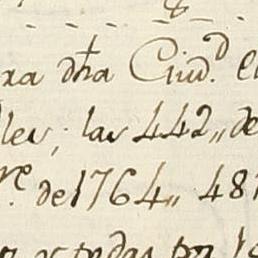 xa dħa Ciud.d
les; las 442,, de
re. de 1764,, 481
y todas por